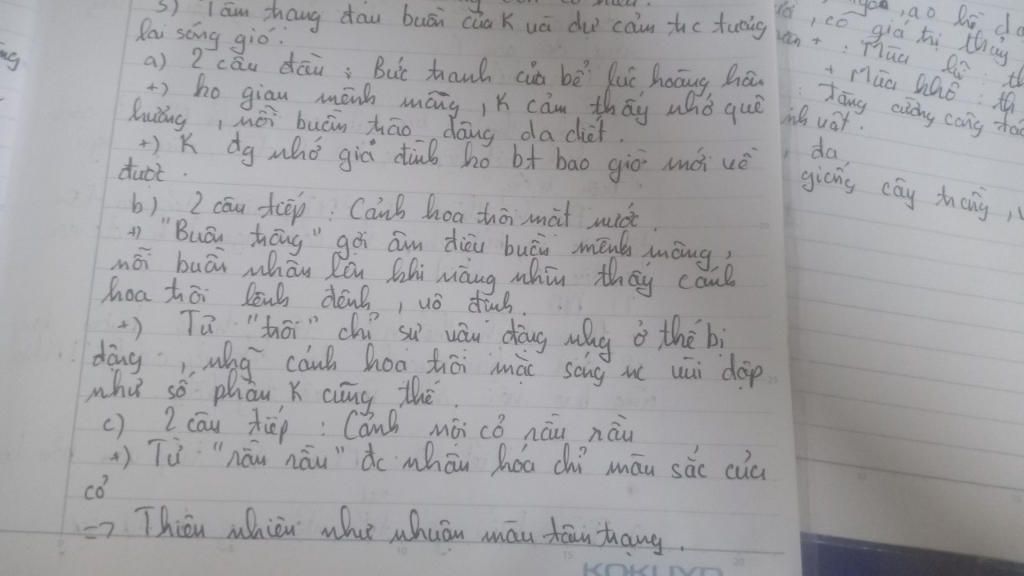 3) Tâm trạng đau buồn của K và dự cảm tc tương
lai sóng gió.
a) 2 câu đầu : Bức tranh cửa bể lúc hoàng hôn
+) ko gian mênh mông, K cảm thấy nhớ quê
hương, nỗi buồn trào dâng da diết.
+) K đg nhớ gia đình ko bt bao giờ mới về
được.
b) 2 câu tiếp : Cánh hoa trôi mặt nước.
+) "Buồn trông" gợi âm điệu buồn mênh mông,
nỗi buồn nhân lên khi nàng nhìn thấy cánh
hoa trôi lênh đênh, vô định.
+) Từ "trôi" chỉ sự vận động nhg ở thế bị
động, nhg cánh hoa trôi mặc sóng nc vùi dập
như số phận K cũng thế.
c) 2 câu tiếp : Cảnh nội cỏ rầu rầu
+) Từ "rầu rầu" đc nhân hóa chỉ màu sắc của
cỏ
=> Thiên nhiên như nhuộm màu tâm trạng.
KOKUYO
ao hồ
có giá trị thủy
+ Mùa lũ :
+ Mùa khô :
: Tăng cường công tác
vật.
da
giống cây trồng,